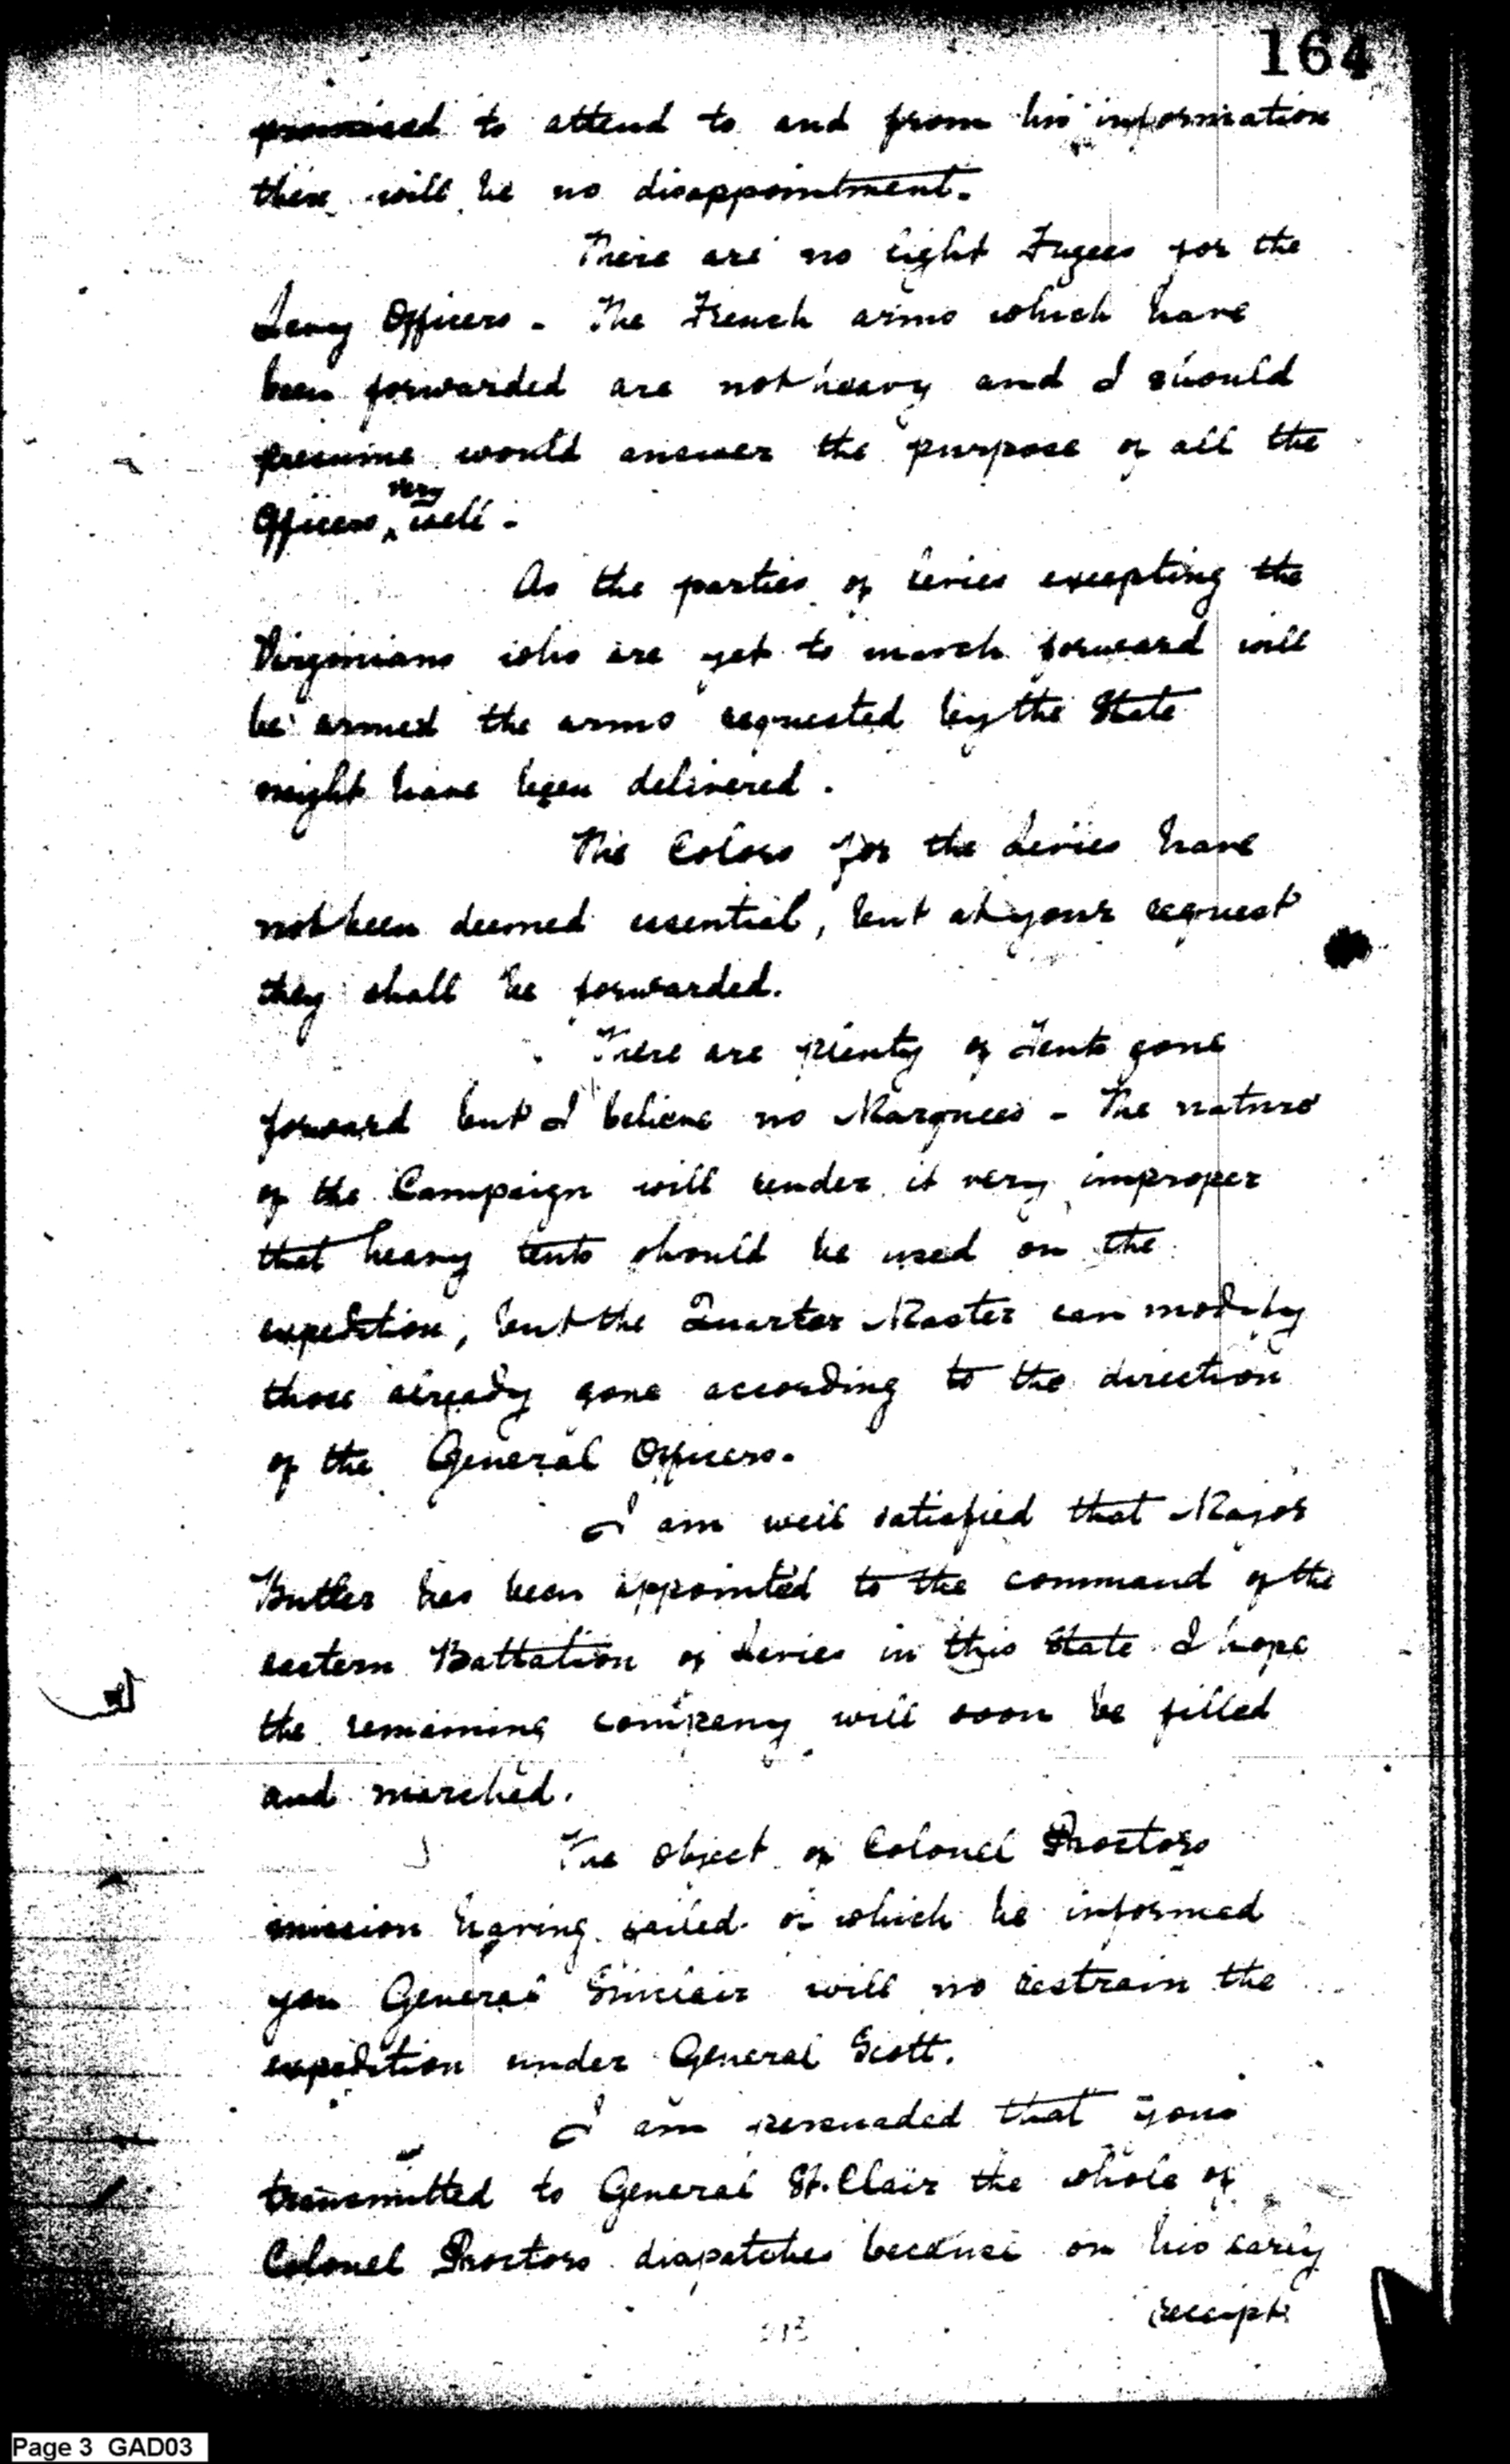 164
promised to attend to and from his information
there will be no disappointment.
There are no light Fuzees for the
Levy Officers - The French arms which have
been forwarded are not heavy and I should
presume would answer the purpose of all the
Officers, very well -
As the parties of levies excepting the
Virginians who are yet to march forward will
be armed the arms requested by the State
might have been delivered.
The Colors for the Levies have
not been deemed essential, but at your request
they shall be forwarded.
There are plenty of Tents gone
forward but I believe no Marquees - The nature
of the Campaign will render it very improper
that heavy tents should be used on the
expedition, but the Quarter Master can modify
those already gone according to the direction
of the General Officers.
I am well satisfied that Major
Butler has been appointed to the command of the
eastern Battation of Levies in this State I hope
the remaining company will soon be filled
and marched.
The object of Colonel Proctors
mission having failed of which he informed
you General Sinclair will no restrain the
expedition under General Scott.
I am persuaded that you
transmitted to General St. Clair the whole of
Colonel Proctors dispatches because on his early
receipt
Page 3 GAD03